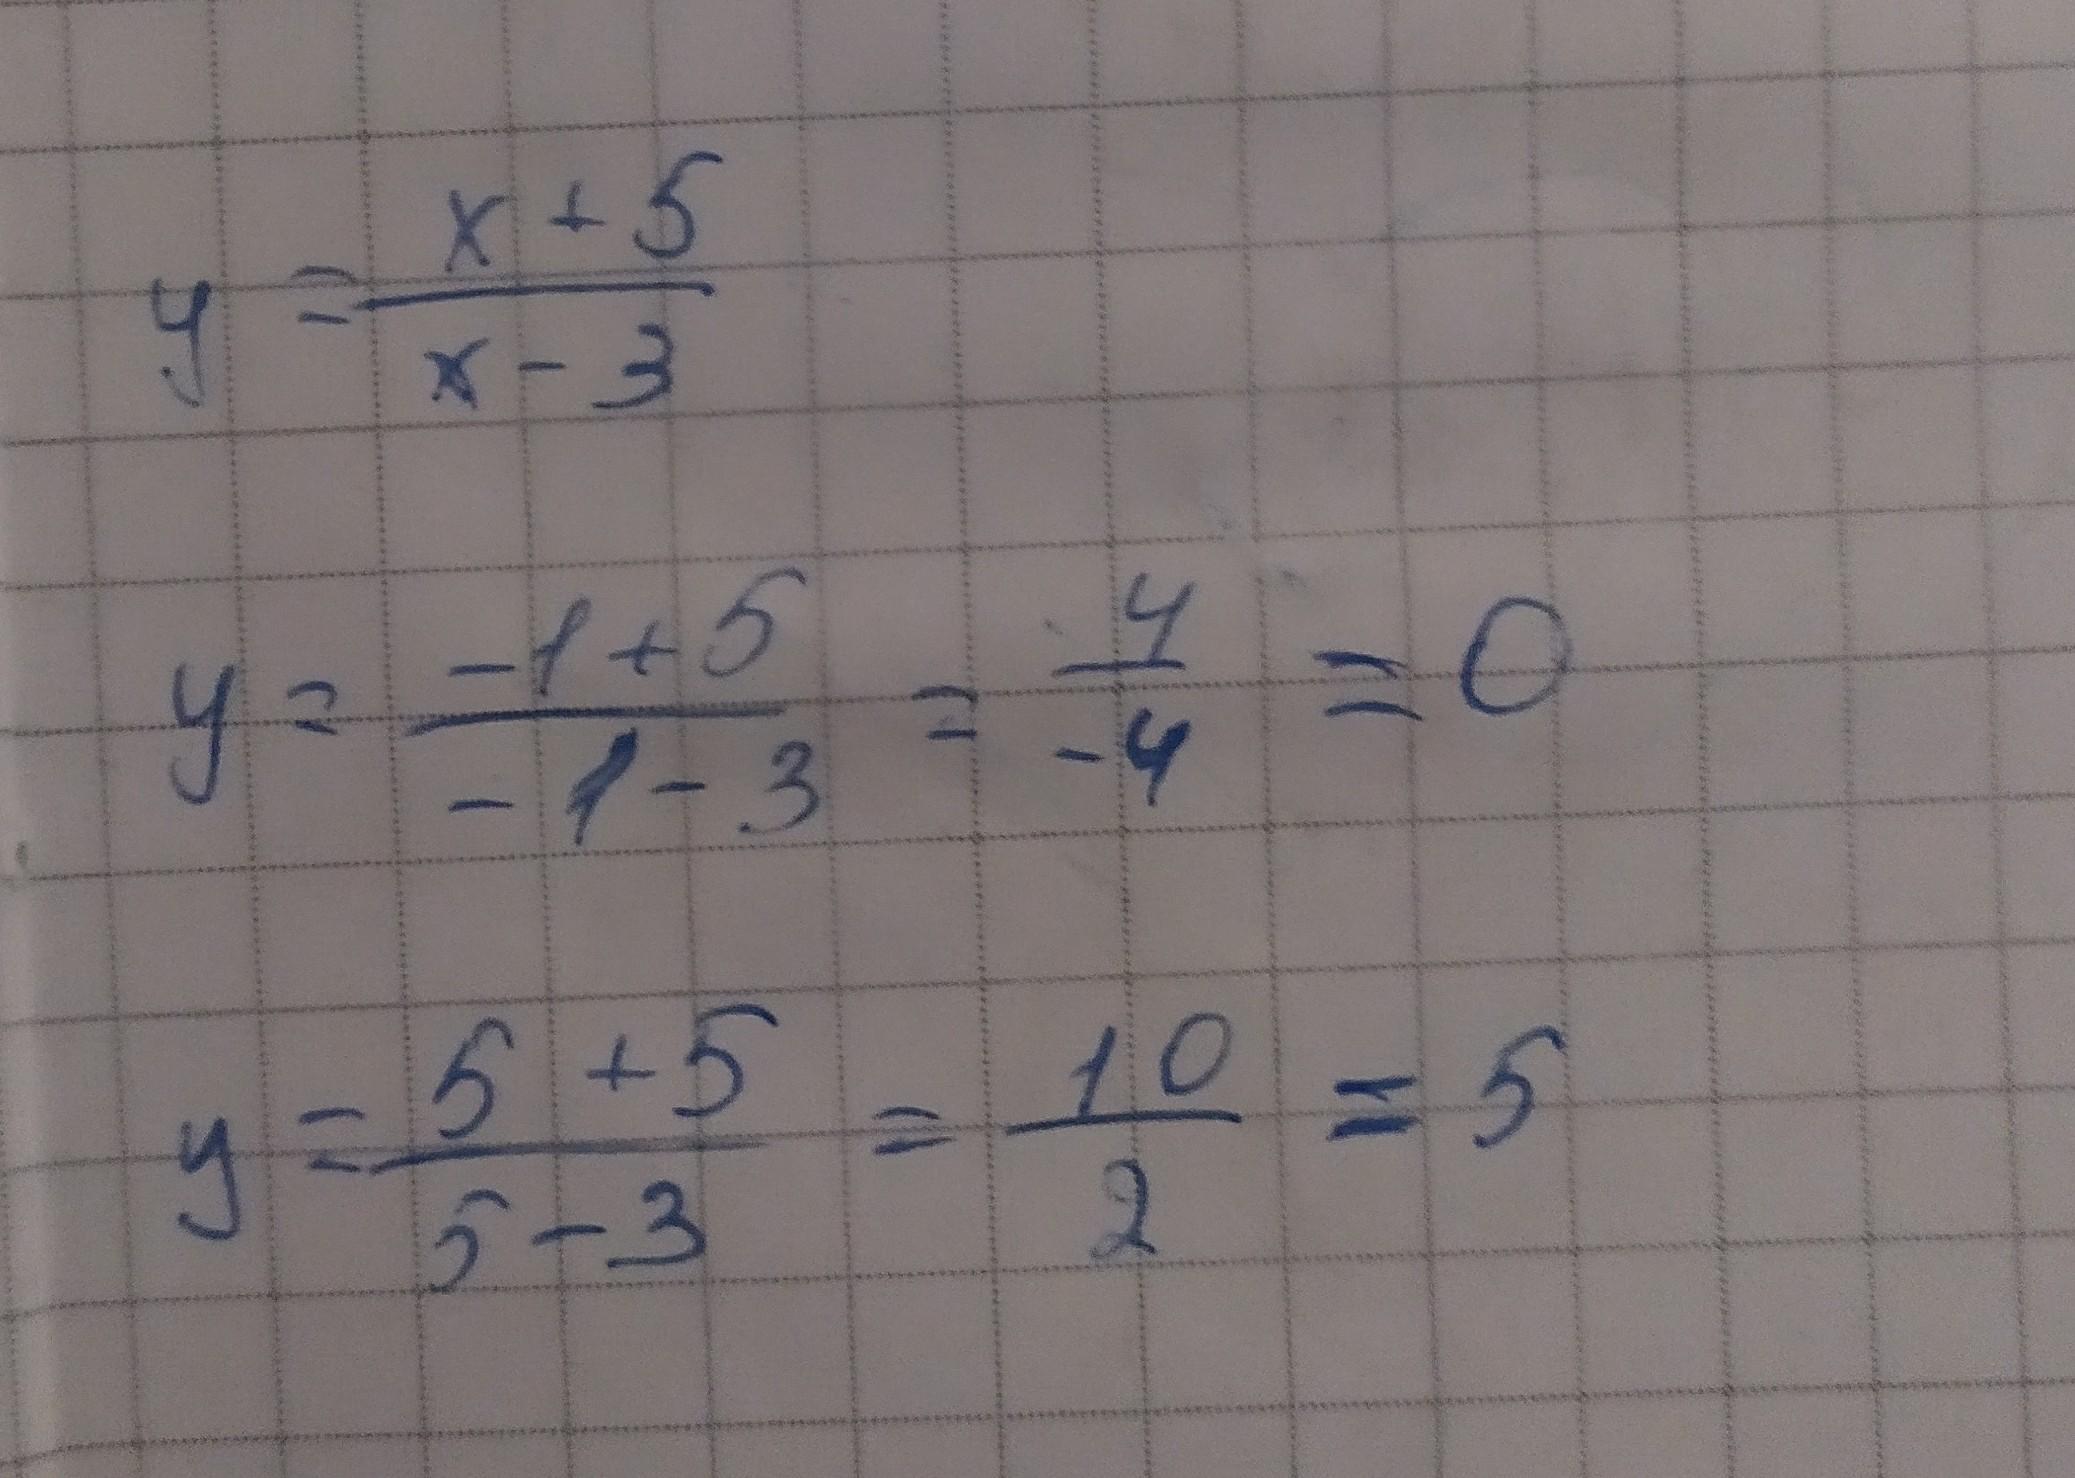 y = (x + 5) / (x - 3)
y = (-1 + 5) / (-1 - 3) = 4 / -4 = 0
y = (5 + 5) / (5 - 3) = 10 / 2 = 5